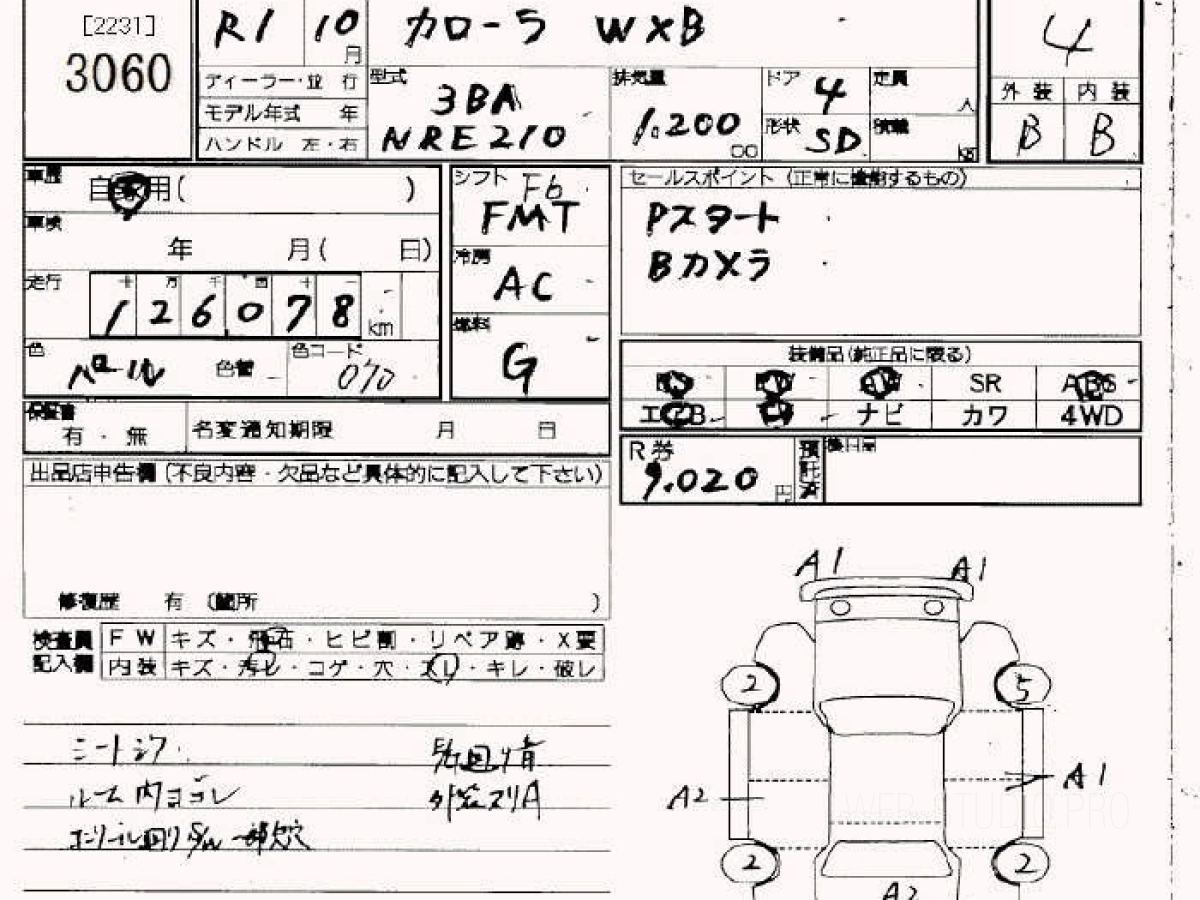 [2231]
3060
R1 10月
カローラ WXB
4
ディーラー・並 行
モデル年式 年
ハンドル 左・右
型式 3BA
NRE210
排気量 1.200 cc
ドア 4
形状 SD
定員 人
積載 kg
外装 内装
B B
車歴 自家用( )
車検 年 月( 日)
走行 十 万 千 百 十 一
126,078 km
色 パール 色替
色コード 070
シフト F6
FMT
冷房 AC
燃料 G
セールスポイント (正常に機能するもの)
Pスタート
Bカメラ
装備品(純正品に限る)
PS PW AW SR ABS
エアB ナビ カワ 4WD
保証書 有・無
名変通知期限 月 日
R券 9.020 円
預託済
後日届
出品店申告欄 (不良内容・欠品など具体的に記入して下さい)
修復歴 有 (箇所 )
検査員記入欄
FW キズ・飛石・ヒビ割・リペア跡・X要
内装 キズ・汚レ・コゲ・穴・スレ・キレ・破レ
シートシワ
ルーム内ヨゴレ
コンソール回り S/W 一部欠穴
外装スリA
A1 A1
2 5
A2 A1
2 2
A2
WEB STUDIO PRO